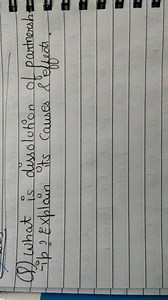 Q) What is dissolution of partnersh
-ip? Explain its causes & effect.